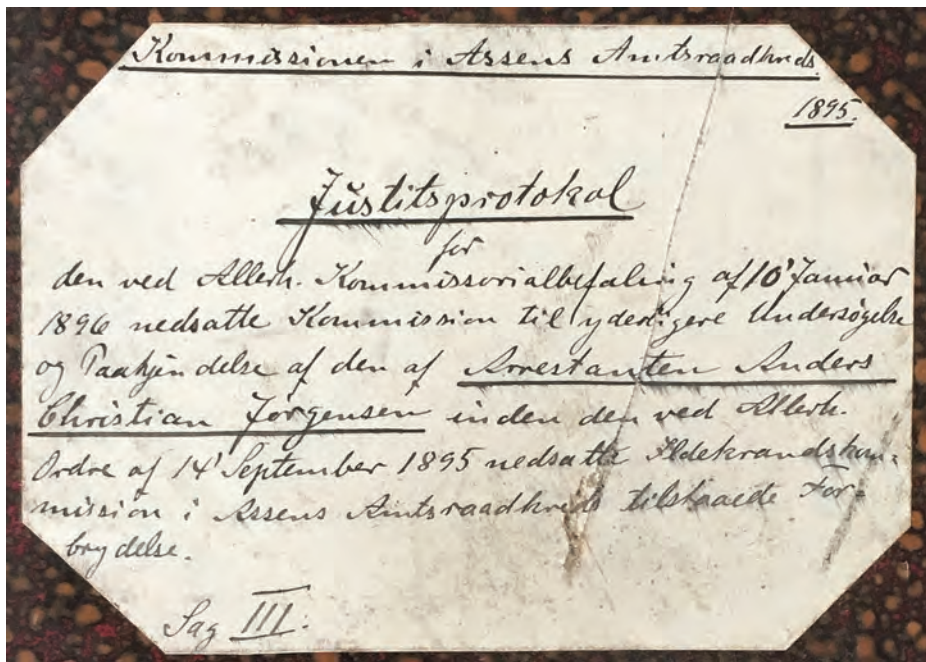 Kommissionen i Assens Amtsraadkreds.
1895.
Justitsprotokol
for
den ved Allerh. Kommissorialbefaling af 10' Januar
1896 nedsatte Kommission til yderligere Undersøgelse
og Paakjendelse af den af Arrestanten Anders
Christian Jørgensen inden den ved Allerh.
Ordre af 14' September 1895 nedsatte Ildebrandskom-
mission i Assens Amtsraadkreds tilstaaede For-
brydelse.
Sag III.